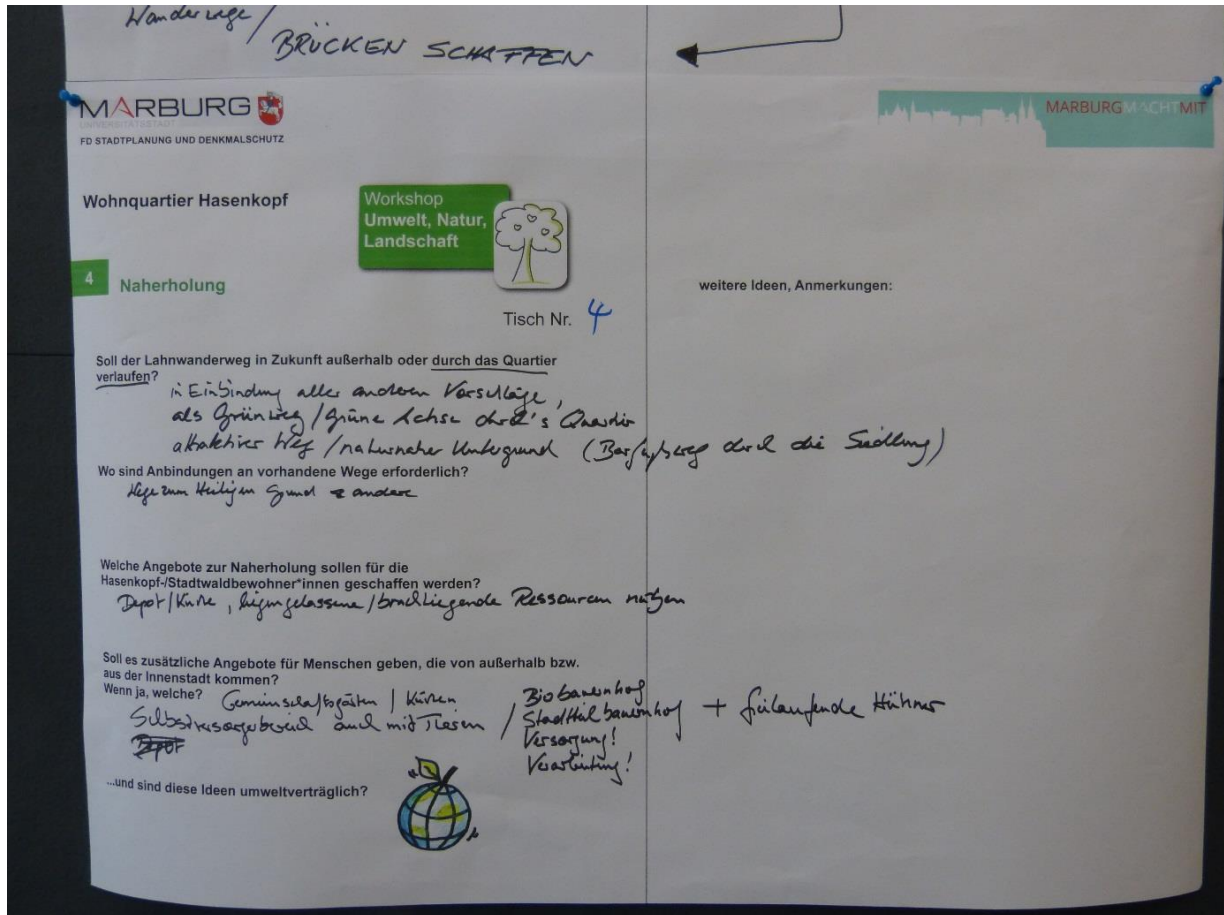 Wanderwege /
BRÜCKEN SCHAFFEN
MARBURG
UNIVERSITÄTSSTADT
FD STADTPLANUNG UND DENKMALSCHUTZ
MARBURGMACHTMIT
Wohnquartier Hasenkopf
Workshop
Umwelt, Natur,
Landschaft
4 Naherholung
weitere Ideen, Anmerkungen:
Tisch Nr. 4
Soll der Lahnwanderweg in Zukunft außerhalb oder durch das Quartier
verlaufen?
in Einbindung aller anderen Vorschläge,
als Grünweg / grüne Achse durch's Quartier
attraktiver Weg / naturnaher Untergrund (Barfußweg durch die Siedlung)
Wo sind Anbindungen an vorhandene Wege erforderlich?
Wege zum Heiligen Grund & andere
Welche Angebote zur Naherholung sollen für die
Hasenkopf-/Stadtwaldbewohner*innen geschaffen werden?
Depot / , liegengelassene / brachliegende Ressourcen nutzen
Soll es zusätzliche Angebote für Menschen geben, die von außerhalb bzw.
aus der Innenstadt kommen?
Wenn ja, welche? Gemeinschaftsgärten /
Selbstversorgerbereich auch mit Tieren /
Biobauernhof
Stadtteilbauernhof + freilaufende Hühner
Versorgung!
Verarbeitung!
...und sind diese Ideen umweltverträglich?